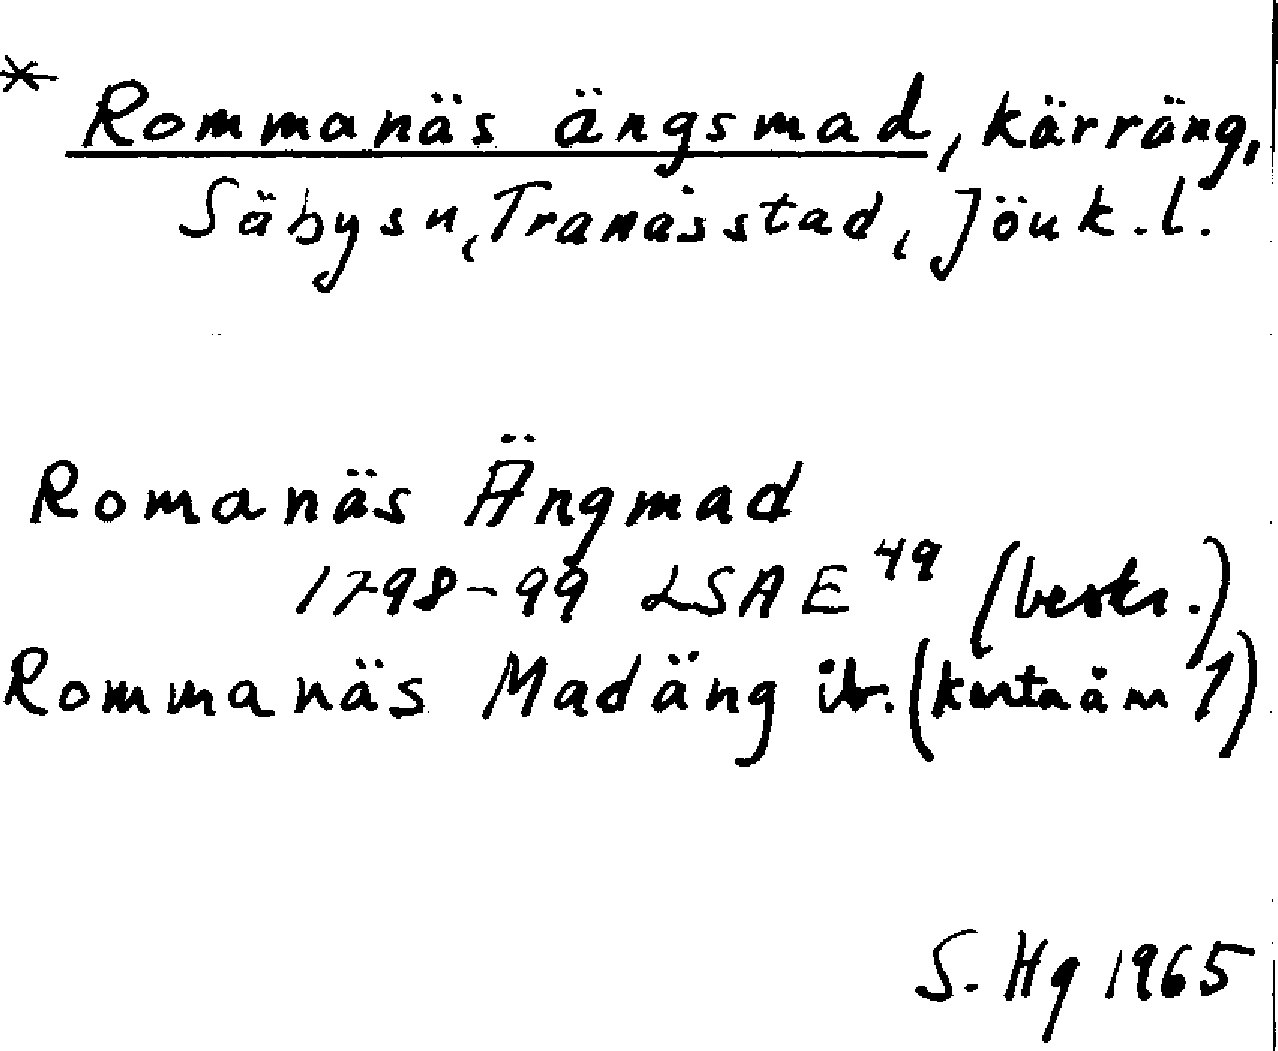 * Rommanäs ängsmad, kärräng,
Säbysn, Tranåsstad, Jönk.l.
Romanäs Ängmad
1798-99 LSA E 49 (beskr.)
Rommanäs Madäng ib. (karta äm 1)
S. Hg 1965